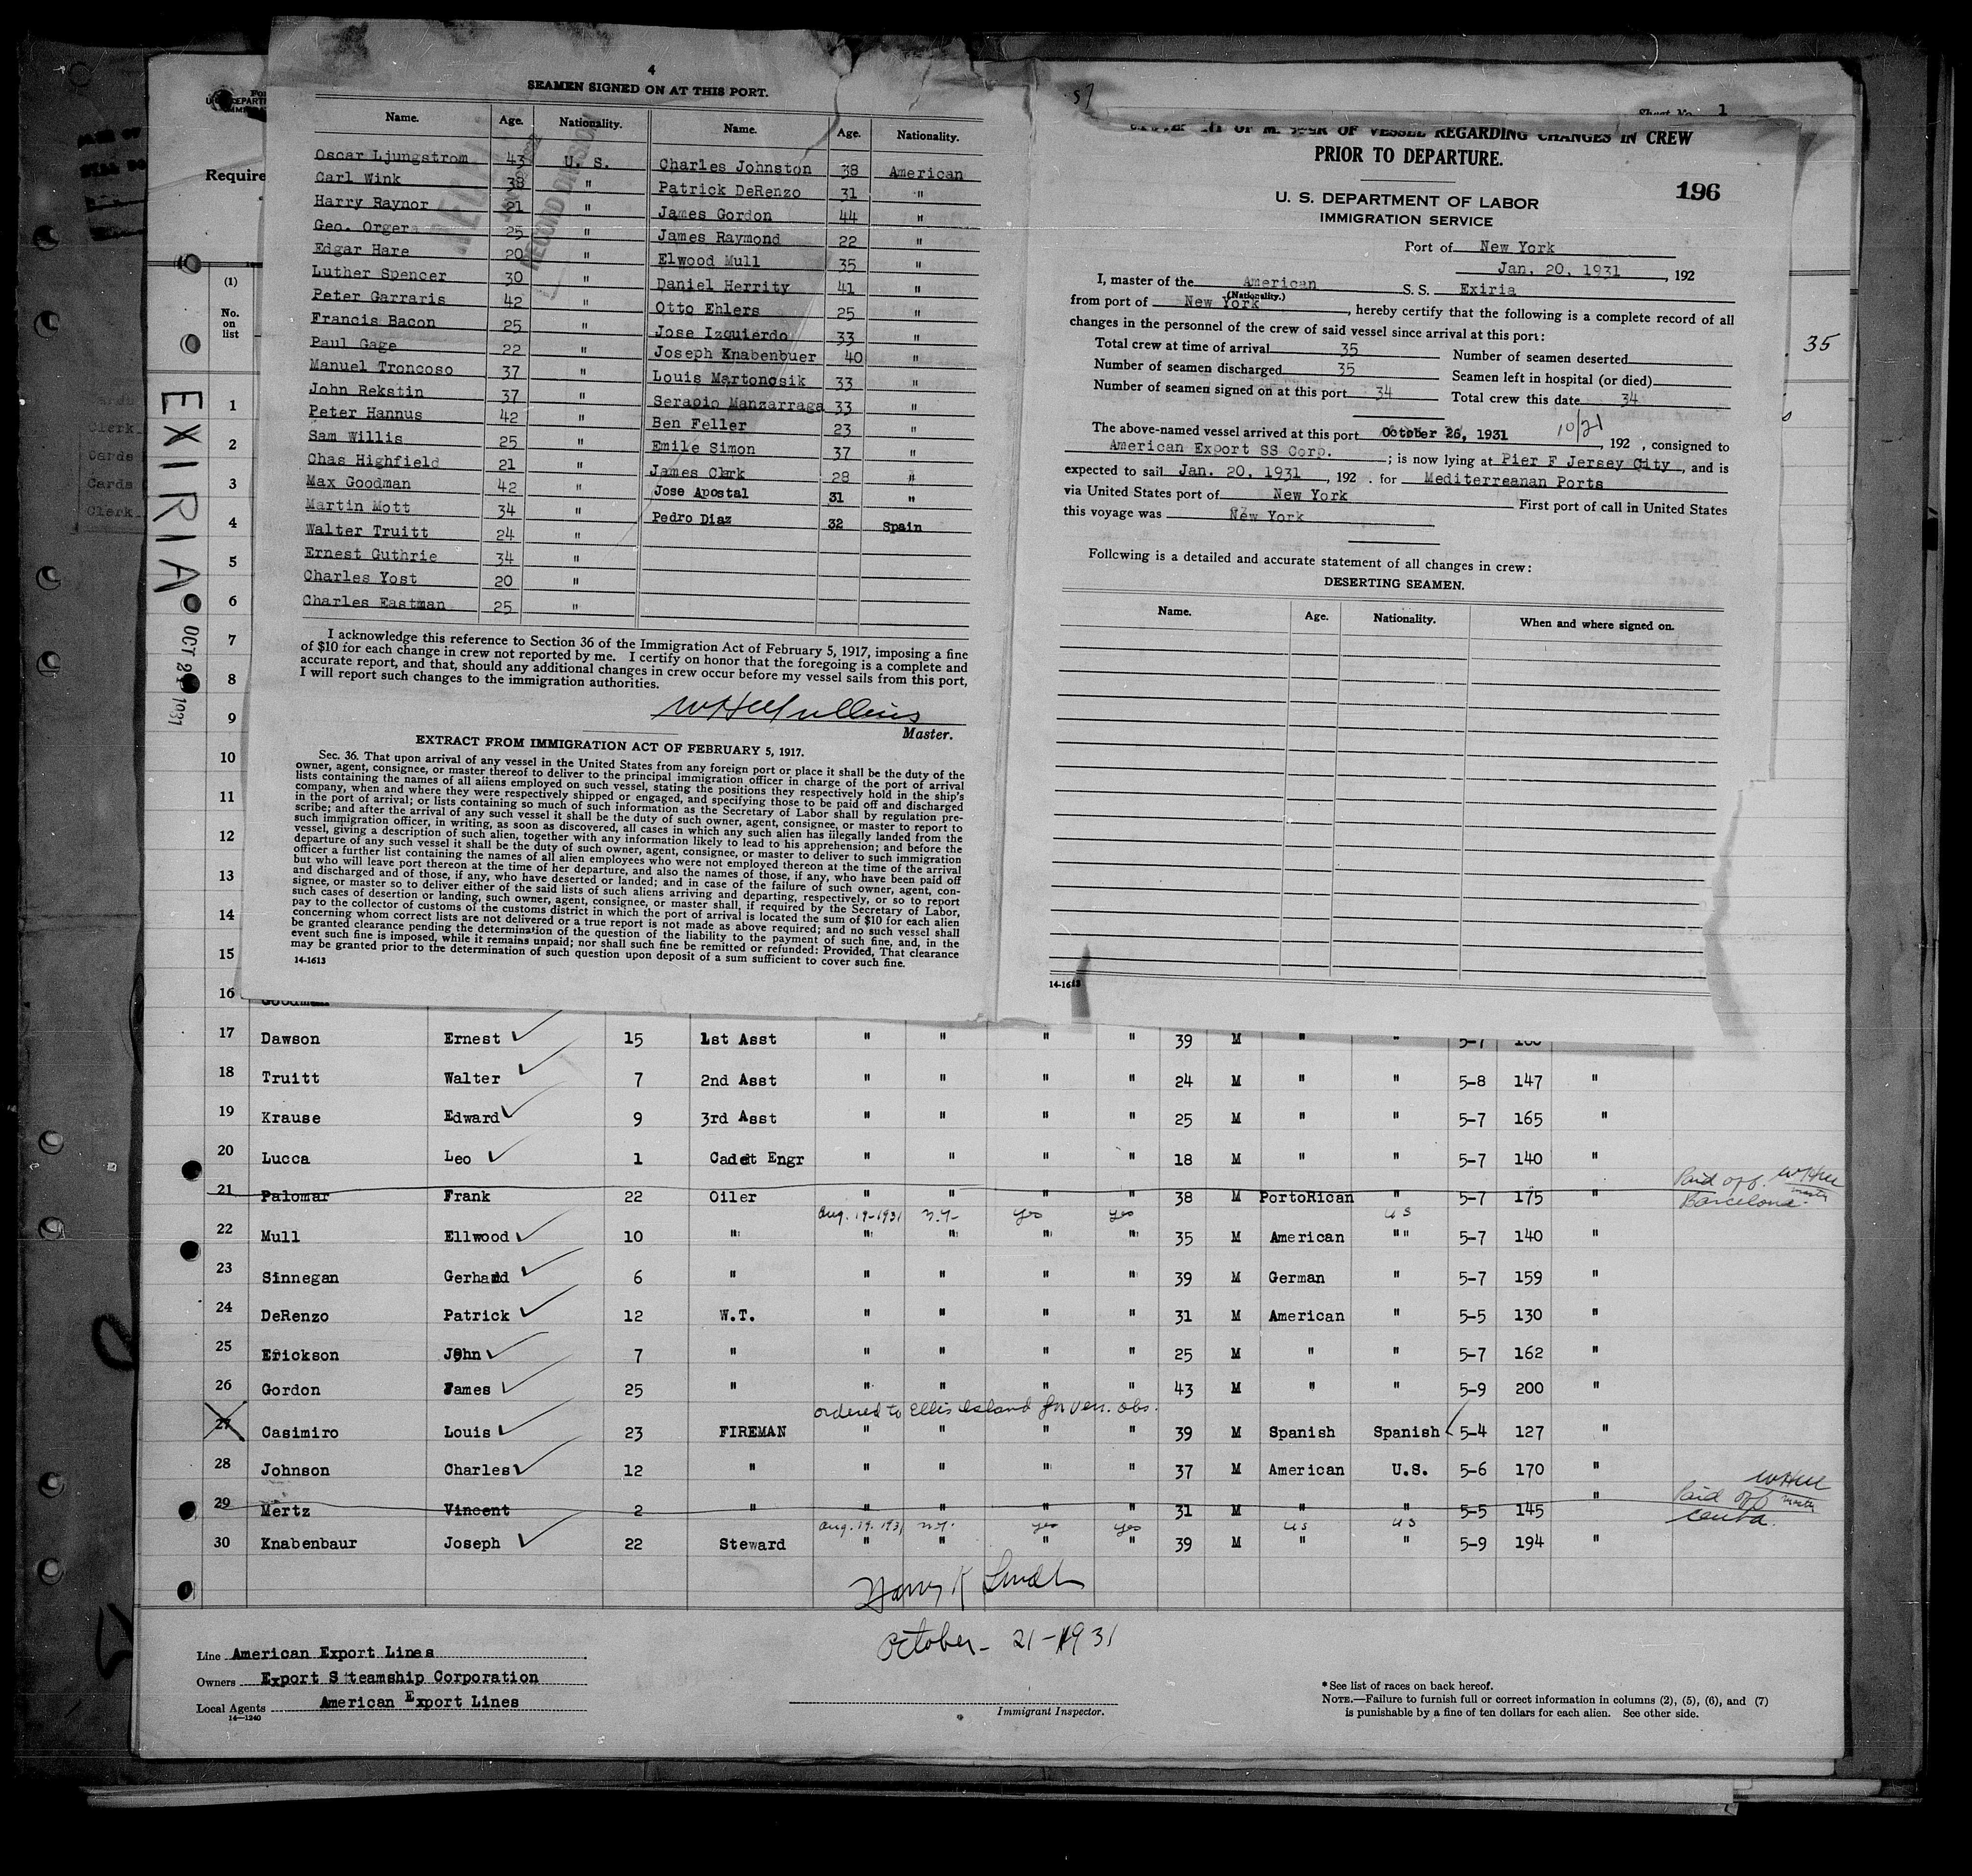 4
SEAMEN SIGNED ON AT THIS PORT.
Name. Age. Nationality. Name. Age. Nationality.
Oscar Ljungstrom 43 U. S. Charles Johnston 38 American
Carl Wink 38 " Patrick DeRenzo 31 "
Harry Raynor 21 " James Gordon 44 "
Geo. Orgera 25 " James Raymond 22 "
Edgar Hare 20 " Elwood Mull 35 "
Luther Spencer 30 " Daniel Herrity 41 "
Peter Garraris 42 " Otto Ehlers 25 "
Francis Bacon 25 " Jose Izquierdo 33 "
Paul Gage 22 " Joseph Knabenbuer 40 "
Manuel Troncoso 37 " Louis Martonosik 33 "
John Rekstin 37 " Serapio Manzarraga 33 "
Peter Hannus 42 " Ben Feller 23 "
Sam Willis 25 " Emile Simon 37 "
Chas Highfield 21 " James Clark 28 "
Max Goodman 42 " Jose Apostal 31 "
Martin Mott 34 " Pedro Diaz 32 Spain
Walter Truitt 24 "
Ernest Guthrie 34 "
Charles Yost 20 "
Charles Eastman 25 "
I acknowledge this reference to Section 36 of the Immigration Act of February 5, 1917, imposing a fine
of $10 for each change in crew not reported by me. I certify on honor that the foregoing is a complete and
accurate report, and that, should any additional changes in crew occur before my vessel sails from this port,
I will report such changes to the immigration authorities.
Master.
EXTRACT FROM IMMIGRATION ACT OF FEBRUARY 5, 1917.
Sec. 36. That upon arrival of any vessel in the United States from any foreign port or place it shall be the duty of the
owner, agent, consignee, or master thereof to deliver to the principal immigration officer in charge of the port of arrival
lists containing the names of all aliens employed on such vessel, stating the positions they respectively hold in the ship's
company, when and where they were respectively shipped or engaged, and specifying those to be paid off and discharged
in the port of arrival; or lists containing so much of such information as the Secretary of Labor shall by regulation pre-
scribe; and after the arrival of any such vessel it shall be the duty of such owner, agent, consignee, or master to report to
such immigration officer, in writing, as soon as discovered, all cases in which any such alien has illegally landed from the
vessel, giving a description of such alien, together with any information likely to lead to his apprehension; and before the
departure of any such vessel it shall be the duty of such owner, agent, consignee, or master to deliver to such immigration
officer a further list containing the names of all alien employees who were not employed thereon at the time of the arrival
but who will leave port thereon at the time of her departure, and also the names of those, if any, who have been paid off
and discharged and of those, if any, who have deserted or landed; and in case of the failure of such owner, agent, con-
signee, or master so to deliver either of the said lists of such aliens arriving and departing, respectively, or so to report
such cases of desertion or landing, such owner, agent, consignee, or master shall, if required by the Secretary of Labor,
pay to the collector of customs of the customs district in which the port of arrival is located the sum of $10 for each alien
concerning whom correct lists are not delivered or a true report is not made as above required; and no such vessel shall
be granted clearance pending the determination of the question of the liability to the payment of such fine, and, in the
event such fine is imposed, while it remains unpaid; nor shall such fine be remitted or refunded: Provided, That clearance
may be granted prior to the determination of such question upon deposit of a sum sufficient to cover such fine.
14-1613
57
Sheet No. 1
OF VESSEL REGARDING CHANGES IN CREW
PRIOR TO DEPARTURE.
196
U. S. DEPARTMENT OF LABOR
IMMIGRATION SERVICE
Port of New York
Jan. 20, 1931, 192
I, master of the American S. S. Exiria
(Nationality.)
from port of New York, hereby certify that the following is a complete record of all
changes in the personnel of the crew of said vessel since arrival at this port:
Total crew at time of arrival 35 Number of seamen deserted
Number of seamen discharged 35 Seamen left in hospital (or died)
Number of seamen signed on at this port 34 Total crew this date 34
The above-named vessel arrived at this port October 26, 1931 10/21, 192 , consigned to
American Export SS Corp. ; is now lying at Pier F Jersey City, and is
expected to sail Jan. 20, 1931, 192 . for Mediterreanan Ports
via United States port of New York First port of call in United States
this voyage was New York
Following is a detailed and accurate statement of all changes in crew:
DESERTING SEAMEN.
Name. Age. Nationality. When and where signed on.
14-1613
35
Require
(1)
No.
on
list
EXIRIA
OCT 21 1931
1
2
3
4
5
6
7
8
9
10
11
12
13
14
15
16 Goodman
17 Dawson Ernest 15 1st Asst " " " " 39 M " " 5-7
18 Truitt Walter 7 2nd Asst " " " " 24 M " " 5-8 147 "
19 Krause Edward 9 3rd Asst " " " " 25 M " " 5-7 165 "
20 Lucca Leo 1 Cadet Engr " " " " 18 M " " 5-7 140 "
21 Palomar Frank 22 Oiler " " " " 38 M PortoRican " 5-7 175 " Paid off. WHM
Barcelona.
Aug. 19-1931 N.Y- yes yes US
22 Mull Ellwood 10 " " " " " 35 M American "" 5-7 140 "
23 Sinnegan Gerhard 6 " " " " " 39 M German " 5-7 159 "
24 DeRenzo Patrick 12 W.T. " " " " 31 M American " 5-5 130 "
25 Erickson John 7 " " " " " 25 M " " 5-7 162 "
26 Gordon James 25 " " " " " 43 M " " 5-9 200 "
ordered to Ellis Island for ven. obs.
27 Casimiro Louis 23 FIREMAN " " " " 39 M Spanish Spanish 5-4 127 "
28 Johnson Charles 12 " " " " " 37 M American U.S. 5-6 170 "
29 Mertz Vincent 2 " " " " " 31 M " " 5-5 145 " Paid off WHM
Ceuta.
Aug. 19. 1931 N.Y. yes yes US US
30 Knabenbaur Joseph 22 Steward " " " " 39 M " " 5-9 194 "
October - 21 - 1931
Line American Export Lines
Owners Export Steamship Corporation
Local Agents American Export Lines
14-1240
Immigrant Inspector.
* See list of races on back hereof.
NOTE.—Failure to furnish full or correct information in columns (2), (5), (6), and (7)
is punishable by a fine of ten dollars for each alien. See other side.